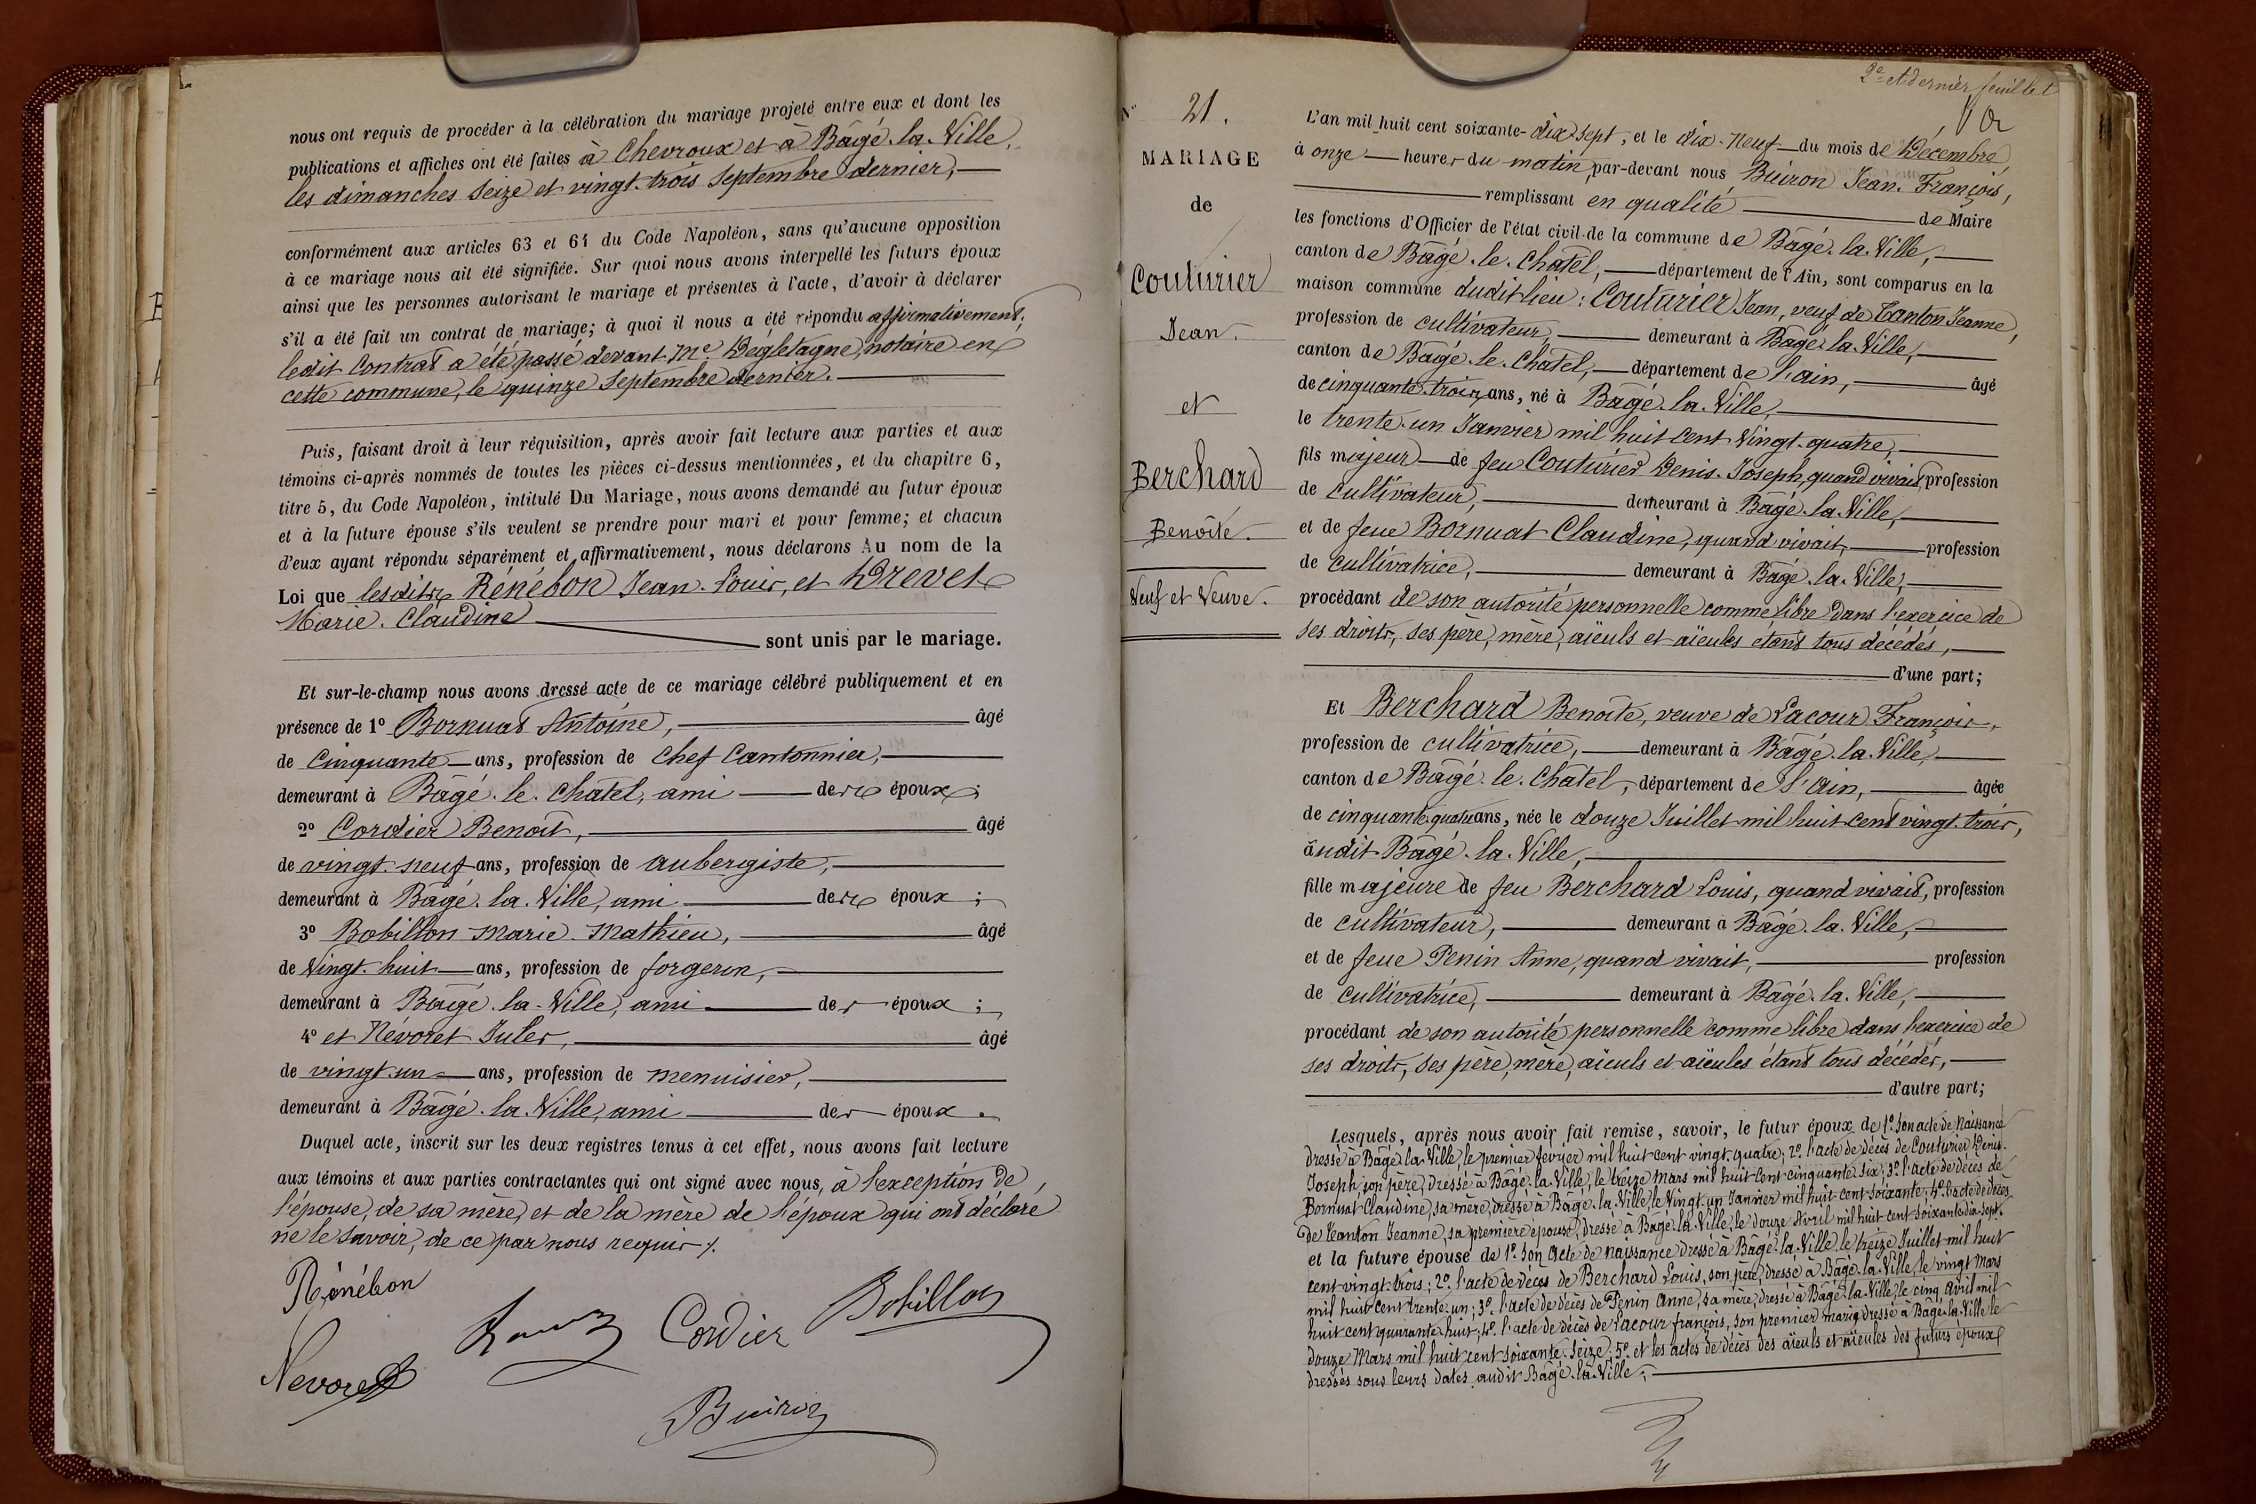 nous ont requis de procéder à la célébration du mariage projeté entre eux et dont les
publications et affiches ont été faites à Chevroux et à Bâgé-la-Ville,
les dimanches seize et vingt-trois septembre dernier,
conformément aux articles 63 et 64 du Code Napoléon, sans qu'aucune opposition
à ce mariage nous ait été signifiée. Sur quoi nous avons interpellé les futurs époux
ainsi que les personnes autorisant le mariage et présentes à l'acte, d'avoir à déclarer
s'il a été fait un contrat de mariage; à quoi il nous a été répondu affirmativement,
ledit Contrat a été passé devant Me notaire en
cette commune, le quinze septembre dernier.
Puis, faisant droit à leur réquisition, après avoir fait lecture aux parties et aux
témoins ci-après nommés de toutes les pièces ci-dessus mentionnées, et du chapitre 6,
titre 5, du Code Napoléon, intitulé Du Mariage, nous avons demandé au futur époux
et à la future épouse s'ils veulent se prendre pour mari et pour femme; et chacun
d'eux ayant répondu séparément et affirmativement, nous déclarons Au nom de la
Loi que lesdits Rénébon Jean-Louis, et Drevet
Marie-Claudine
sont unis par le mariage.
Et sur-le-champ nous avons dressé acte de ce mariage célébré publiquement et en
présence de 1º Bornuat Antoine, âgé
de Cinquante ans, profession de chef Cantonnier,
demeurant à Bâgé-le-Châtel, ami des époux;
2º Cordier Benoît, âgé
de vingt-neuf ans, profession de aubergiste,
demeurant à Bâgé-la-Ville, ami des époux;
3º Bobillon Marie-Mathieu, âgé
de Vingt-huit ans, profession de forgeron,
demeurant à Bâgé-la-Ville, ami des époux;
4º et Nevoret Jules, âgé
de vingt-un ans, profession de menuisier,
demeurant à Bâgé-la-Ville, ami des époux.
Duquel acte, inscrit sur les deux registres tenus à cet effet, nous avons fait lecture
aux témoins et aux parties contractantes qui ont signé avec nous, à l'exception de
l'épouse, de sa mère, et de la mère de l'époux qui ont déclaré
ne le savoir, de ce par nous requis.
Rénébon
Cordier
Bobillon
Nevoret
Buiron
2e et dernier feuillet
Nº 21.
MARIAGE
de
Couturier
Jean.
et
Berchard
Benoîte.
Veuf et Veuve.
L'an mil huit cent soixante-dix-sept, et le dix-neuf du mois de Décembre
à onze heures du matin, par-devant nous Buiron Jean-François,
remplissant en qualité de Maire
les fonctions d'Officier de l'état civil de la commune de Bâgé-la-Ville,
canton de Bâgé-le-Châtel, département de l'Ain, sont comparus en la
maison commune dudit lieu: Couturier Jean, veuf de Canton Jeanne,
profession de cultivateur, demeurant à Bâgé-la-Ville,
canton de Bâgé-le-Châtel, département de l'ain, âgé
de cinquante-trois ans, né à Bâgé-la-Ville,
le trente-un Janvier mil huit cent vingt-quatre,
fils majeur de feu Couturier Denis-Joseph, quand vivait, profession
de cultivateur, demeurant à Bâgé-la-Ville,
et de feue Bornuat Claudine, quand vivait, profession
de cultivatrice, demeurant à Bâgé-la-Ville,
procédant de son autorité personnelle comme libre dans l'exercice de
ses droits, ses père, mère, aïeuls et aïeules étant tous décédés,
d'une part;
Et Berchard Benoîte, veuve de Lacour François,
profession de cultivatrice, demeurant à Bâgé-la-Ville,
canton de Bâgé-le-Châtel, département de l'ain, âgée
de cinquante-quatre ans, née le douze Juillet mil huit cent vingt-trois,
audit Bâgé-la-Ville,
fille majeure de feu Berchard Louis, quand vivait, profession
de cultivateur, demeurant à Bâgé-la-Ville,
et de feue Penin Anne, quand vivait, profession
de cultivatrice, demeurant à Bâgé-la-Ville,
procédant de son autorité personnelle comme libre dans l'exercice de
ses droits, ses père, mère, aïeuls et aïeules étant tous décédés,
d'autre part;
Lesquels, après nous avoir fait remise, savoir, le futur époux de 1º son acte de Naissance
dressé à Bâgé-la-Ville, le premier février mil huit cent vingt-quatre; 2º l'acte de décès de Couturier Denis-
Joseph son père, dressé à Bâgé-la-Ville, le treize Mars mil huit cent cinquante-six; 3º l'acte de décès de
Bornuat Claudine, sa mère, dressé à Bâgé-la-Ville, le Vingt-un Janvier mil huit cent soixante; 4º l'acte de décès
de Canton Jeanne, sa première épouse, dressé à Bâgé-la-Ville, le douze Avril mil huit cent soixante-dix-sept.
et la future épouse de 1º son acte de naissance dressé à Bâgé-la-Ville le treize Juillet mil huit
cent-vingt-trois; 2º l'acte de décès de Berchard Louis, son père, dressé à Bâgé-la-Ville, le vingt Mars
mil huit cent trente-un; 3º l'acte de décès de Penin Anne, sa mère, dressé à Bâgé-la-Ville, le cinq Avril mil
huit cent quarante-huit; 4º l'acte de décès de Lacour François, son premier mari, dressé à Bâgé-la-Ville le
douze Mars mil huit cent soixante-seize; 5º et les actes de décès des aïeuls et aïeules des futurs époux
dressés sous leurs dates audit Bâgé-la-Ville;